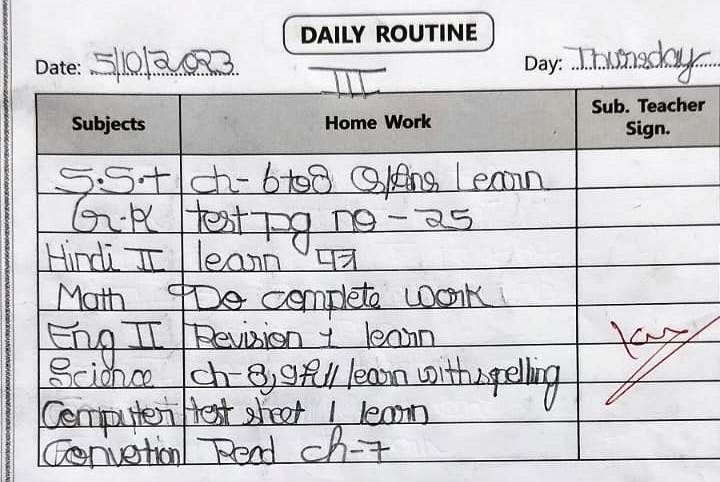 DAILY ROUTINE
Date: 5/10/2023 Day: Thursday
III
Subjects Home Work Sub. Teacher Sign.
S.S.t ch-6 to 8 Q/Ans Learn
G.K test pg no - 25
Hindi II learn पत्र
Math Do complete work
Eng II Revision 1 learn
Science ch-8, 9 full learn with spelling
Computer test sheet 1 learn
Convetion Read ch-7